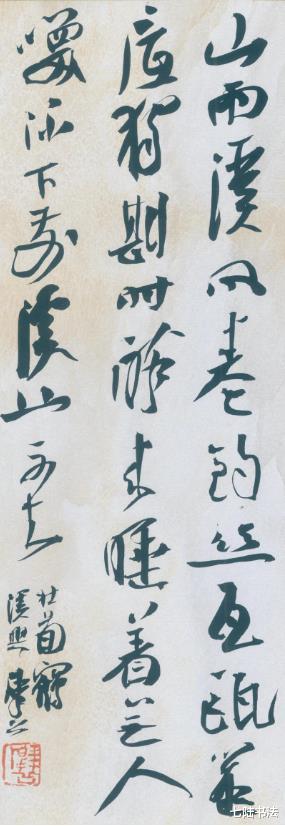 山雨溪风卷钓丝瓦瓯篷
底独斟时醉来睡着无人
唤流下前溪也不知
杜荀鹤
溪兴
七陆书法